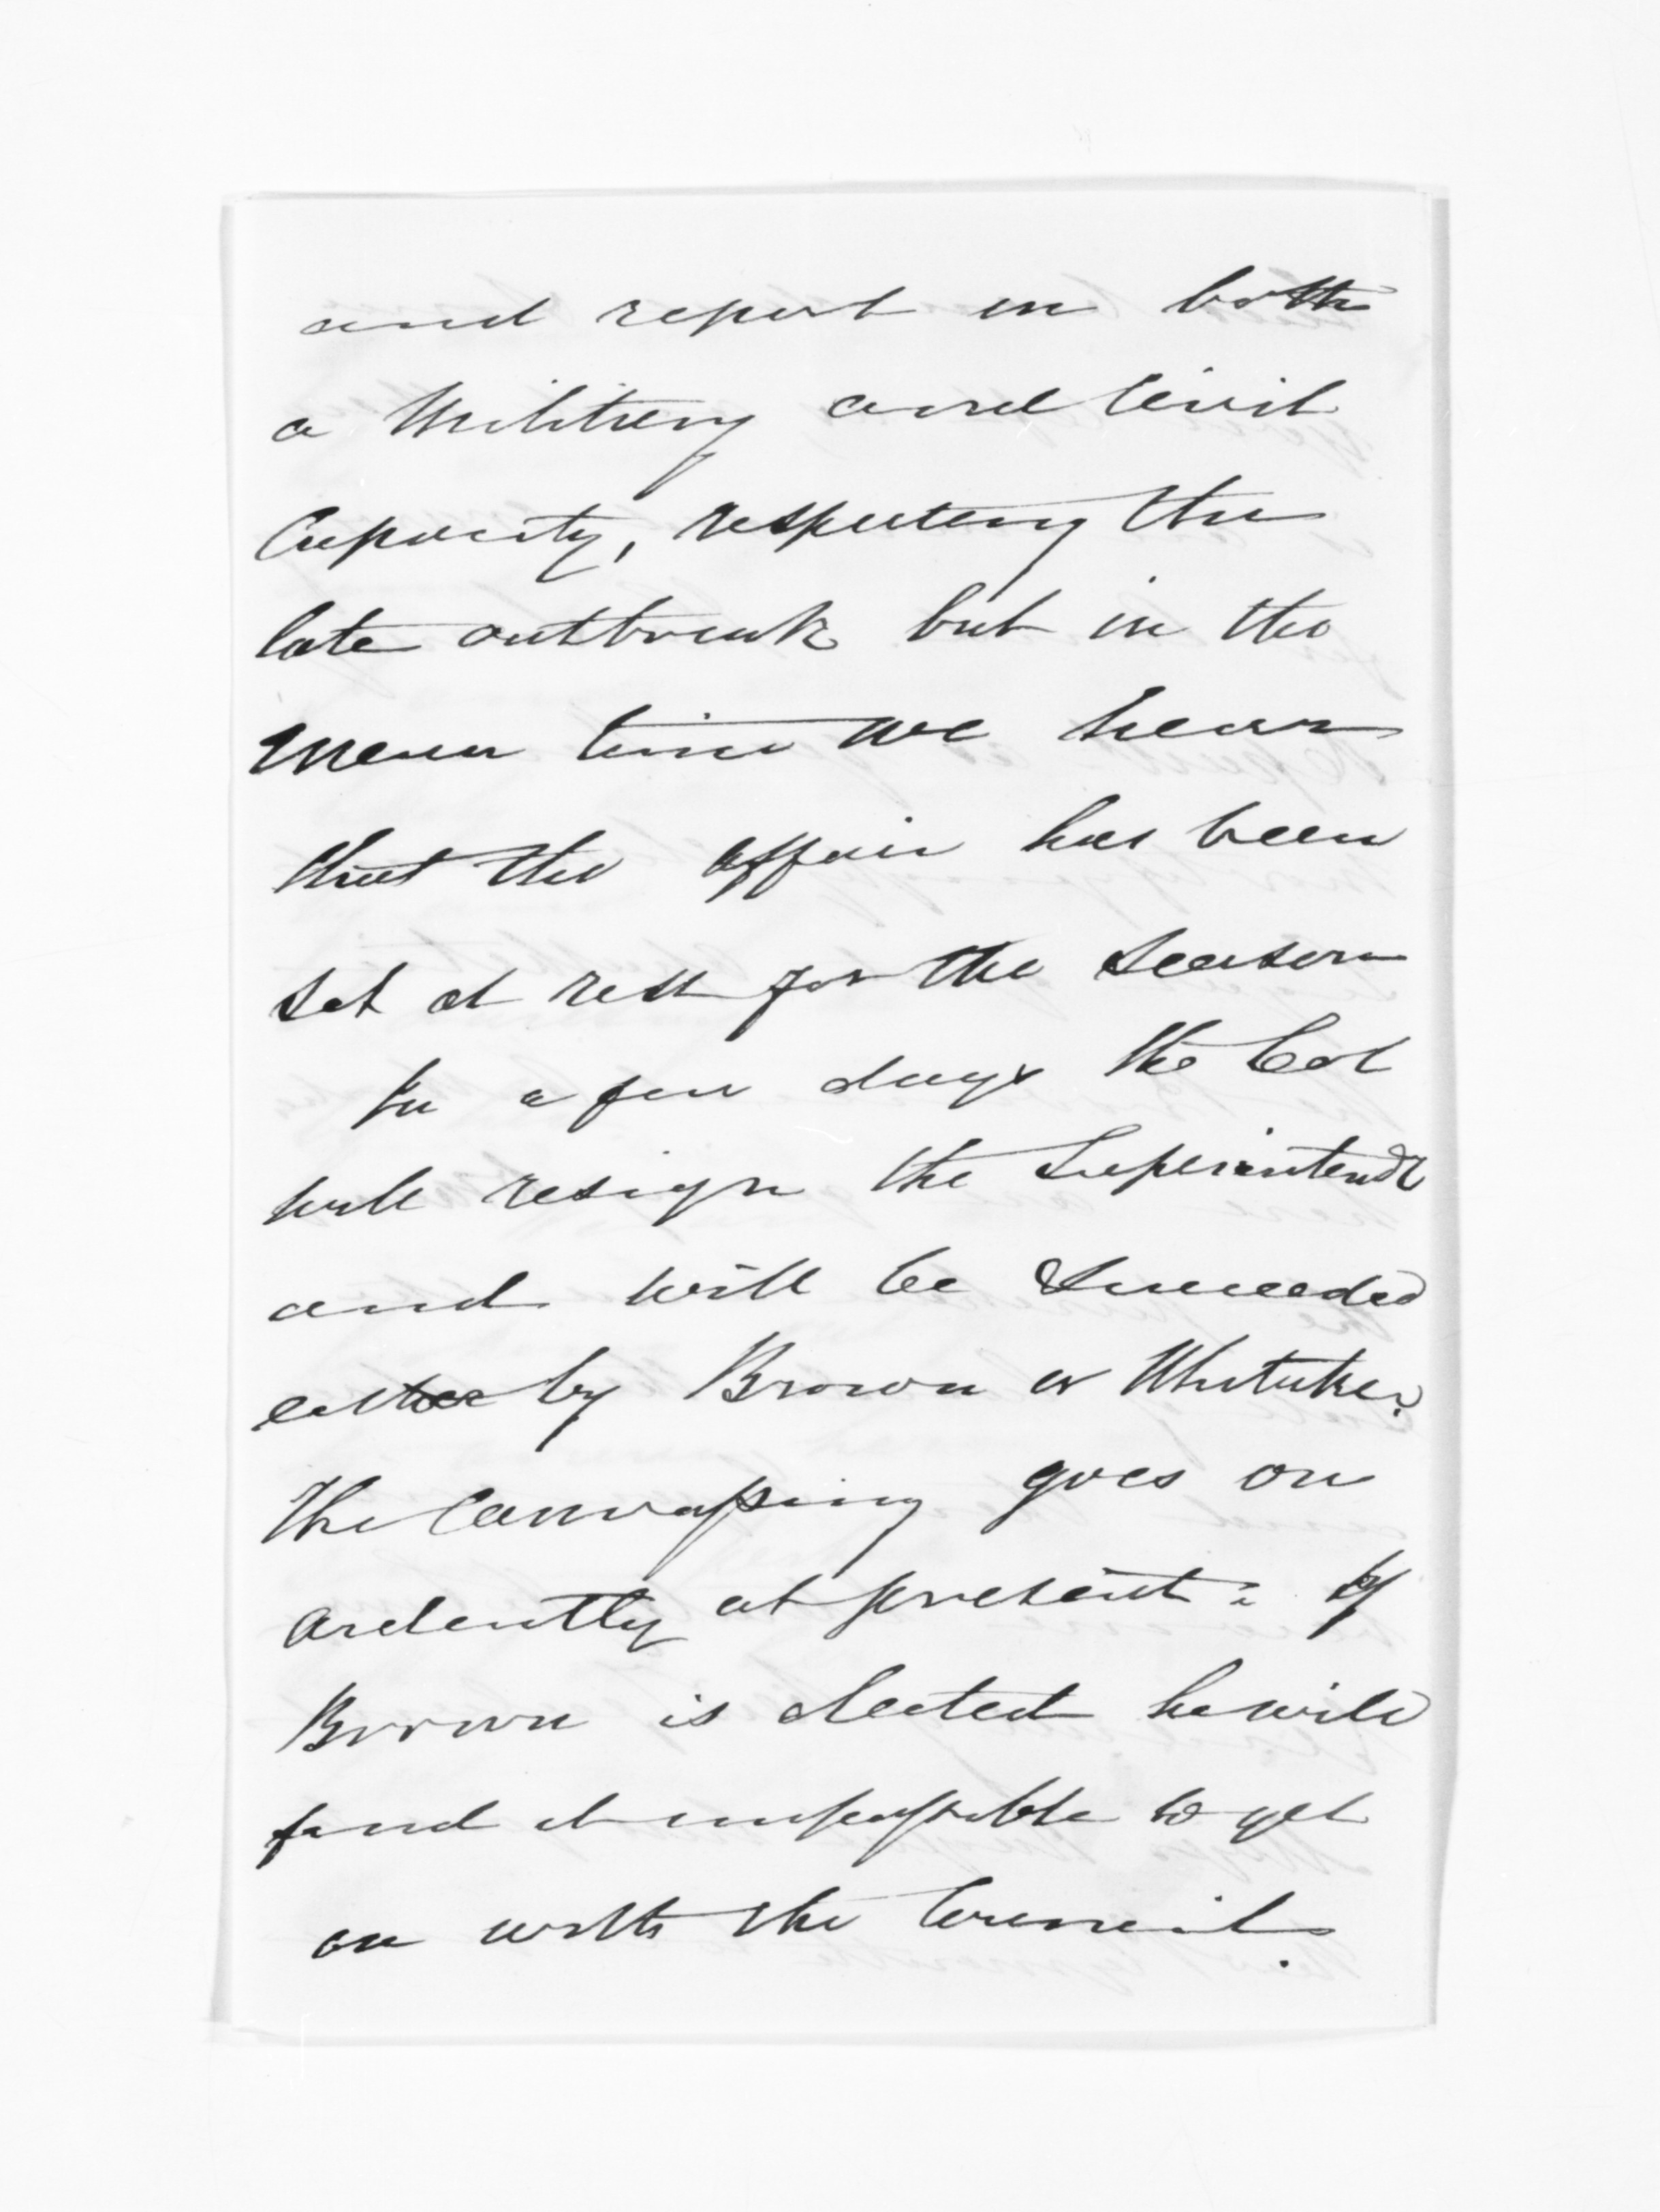 and report in both
a Military and Civil
Capacity, respecting the
late outbreak but in the
mean time we hear
that the affair has been
set at rest for the season
In a few days the Col
will resign the Superintendt
and will be Succeeded
either by Brown or Whitaker.
The Canvassing goes on
ardently at present: If
Brown is elected he will
find it impossible to get
on with the Council.